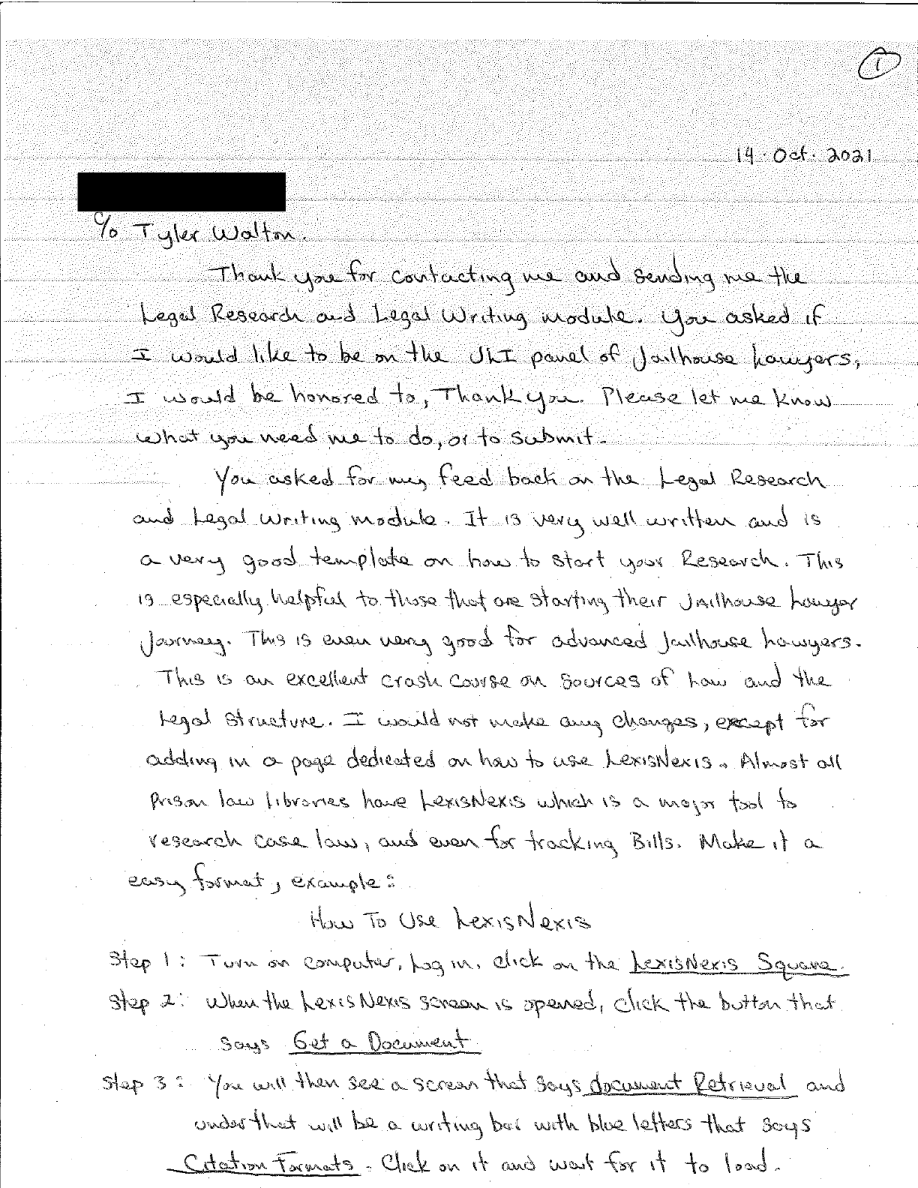 1
14. Oct. 2021
c/o Tyler Walton.
Thank you for contacting me and sending me the
Legal Research and Legal Writing module. You asked if
I would like to be on the JLI panel of Jailhouse Lawyers,
I would be honored to, Thank you. Please let me know
what you need me to do, or to submit.
You asked for my feed back on the Legal Research
and Legal writing module. It is very well written and is
a very good template on how to start your Research. This
is especially helpful to those that are starting their Jailhouse Lawyer
Journey. This is even very good for advanced Jailhouse Lawyers.
This is an excellent crash course on Sources of Law and the
Legal structure. I would not make any changes, except for
adding in a page dedicated on how to use LexisNexis. Almost all
Prison law libraries have LexisNexis which is a major tool to
research case law, and even for tracking Bills. Make it a
easy format, example:
How To Use LexisNexis
Step 1: Turn on computer, Log in, click on the LexisNexis Square.
Step 2: When the LexisNexis screen is opened, click the button that
says Get a Document
Step 3: You will then see a screen that says document Retrieval and
under that will be a writing bar with blue letters that says
Citation Formats. Click on it and wait for it to load.